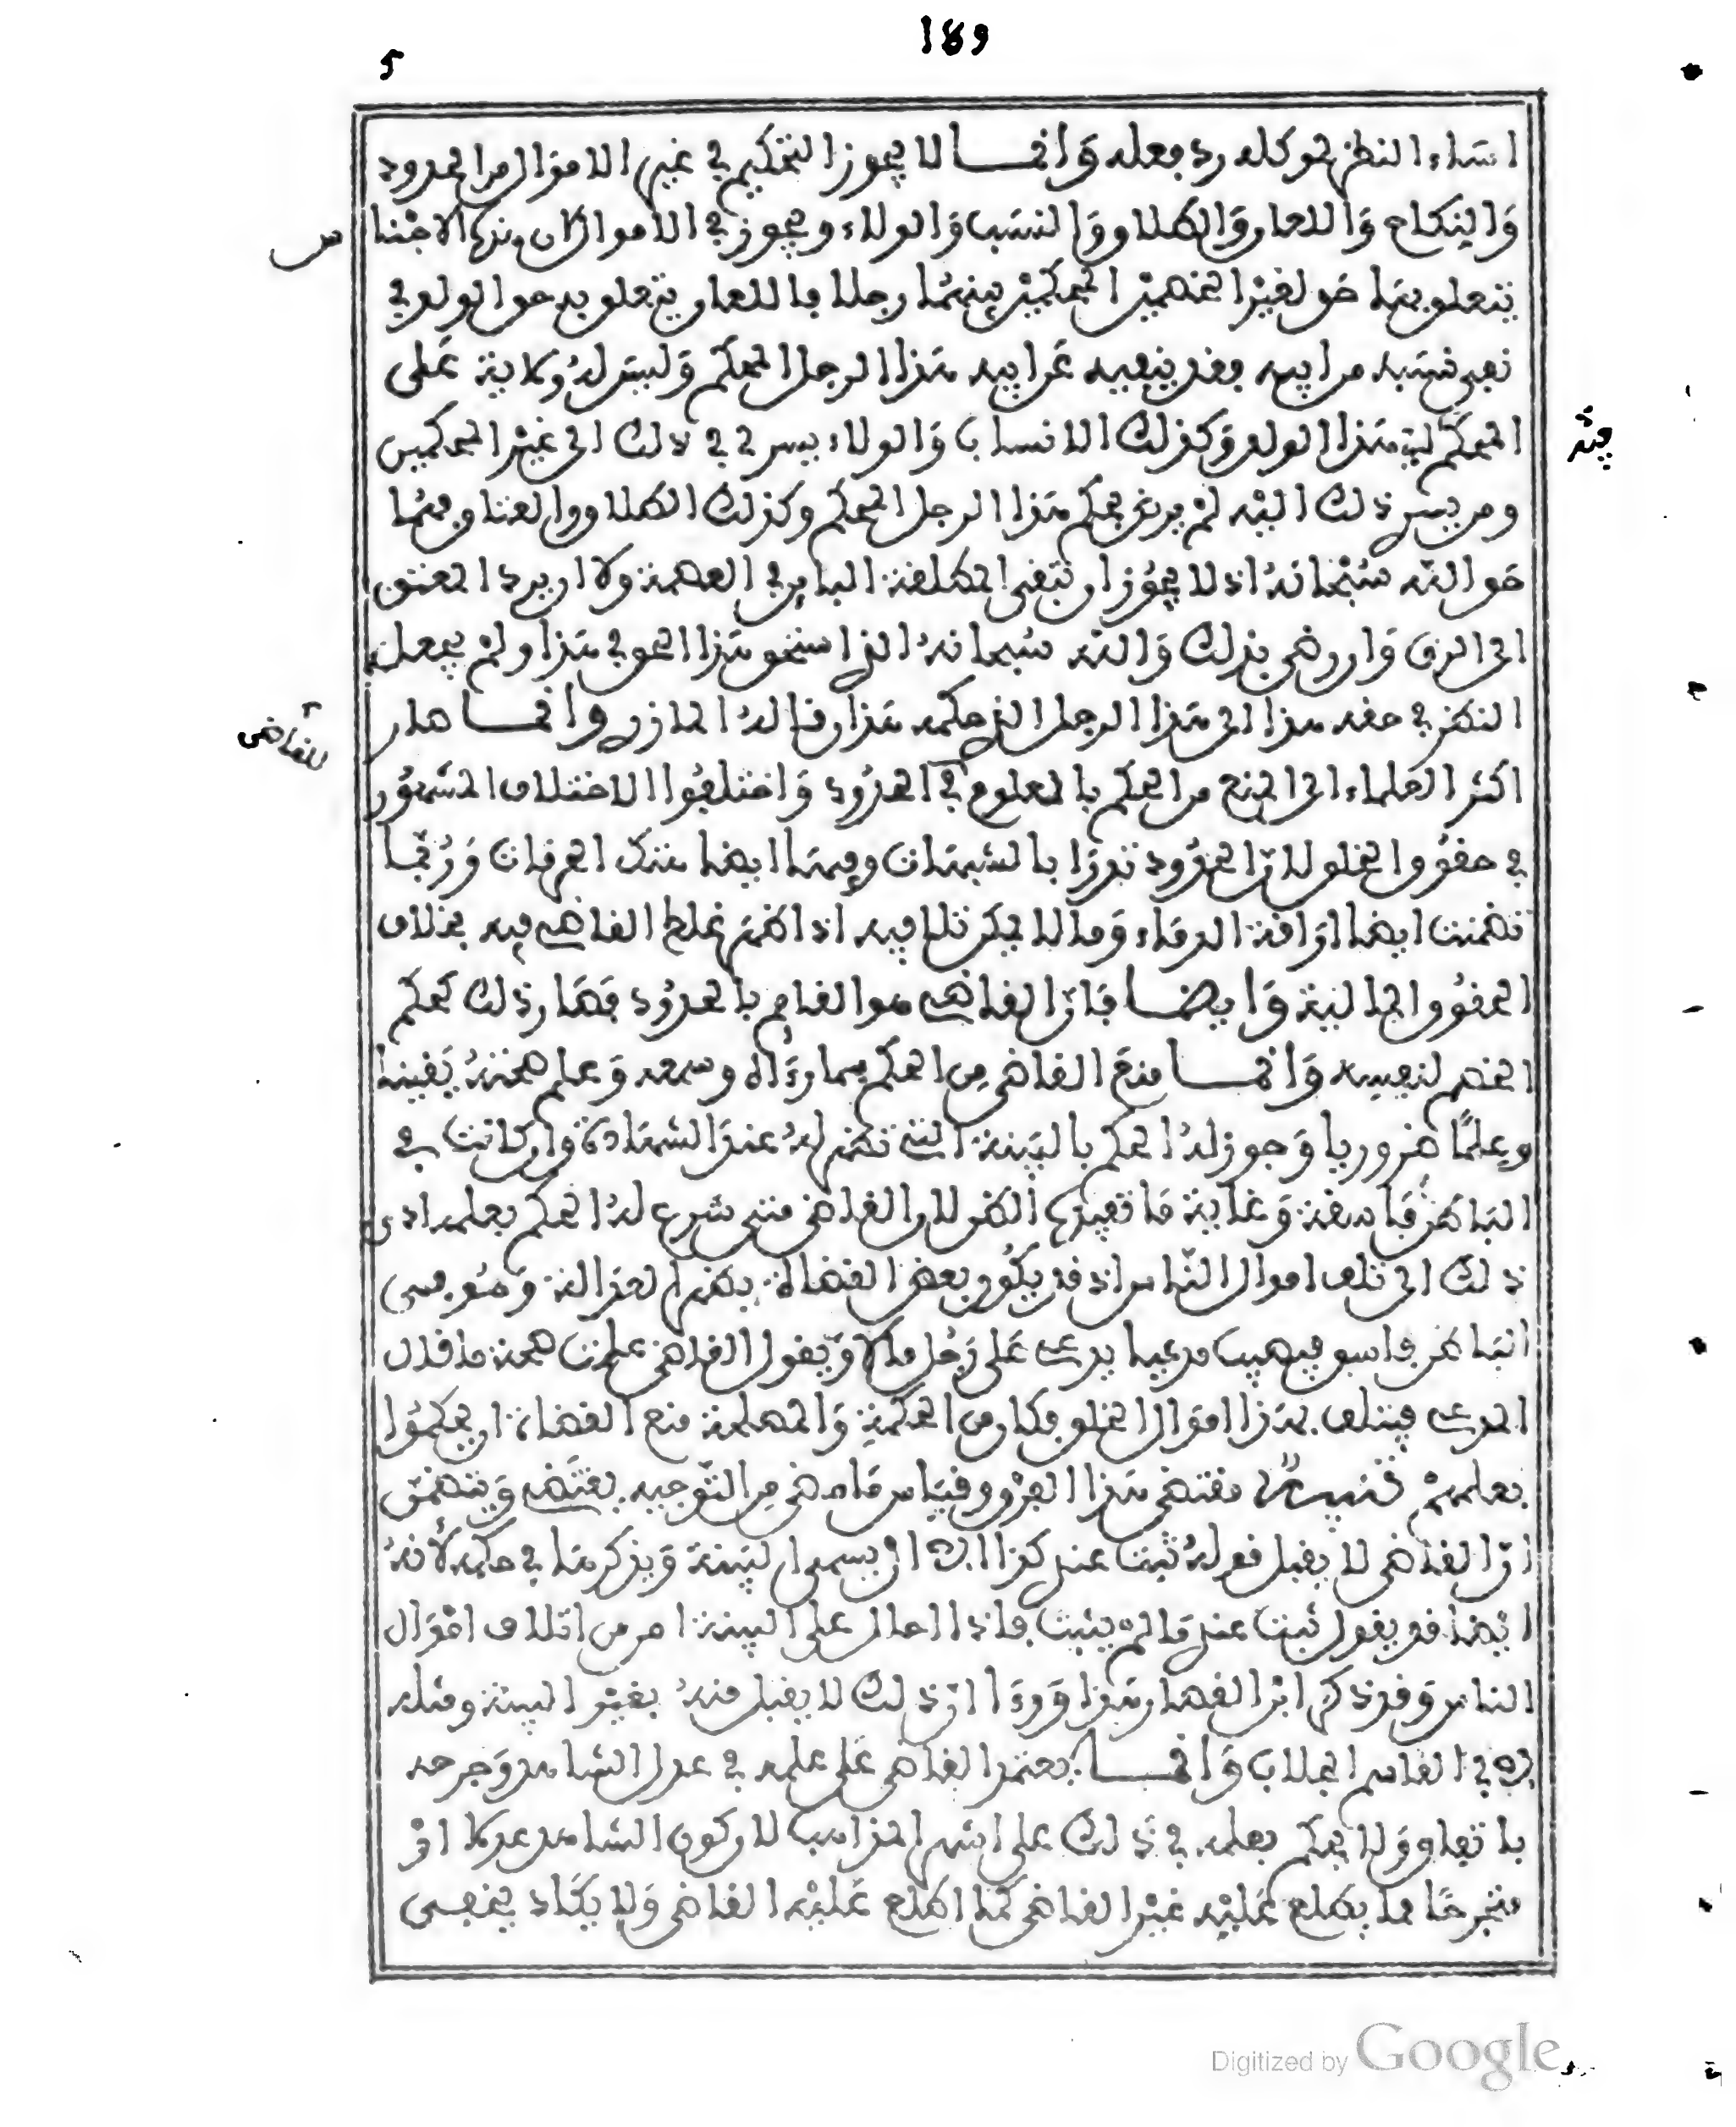 189
5
اساء النظر لموكله رد فعله وانما لا يجوز التحكيم في غير الاموال من الحدود
والنكاح واللعان والطلاق والنسب والولاء ويجوز في الاموال لان هذه الاشياء
يتعلق بها حق لغير الخصمين المحكمين بينهما رجلا فاللعان يتعلق به حق الولد في
نفي نسبه من ابيه وقد ينفيه عن ابيه هذا الرجل المحكم وليس له ولاية على
الحكم في هذا الولد وكذلك الانساب والولاء يسري في ذلك الى غير المحكمين
ومن يسري ذلك اليه لم يرض بحكم هذا الرجل المحكم وكذلك الطلاق والعتاق فيهما
حق الله سبحانه اذ لا يجوز ان تبقى المطلقة البائن في العصمة ولا ان يرد المعتق
الى الرق وان رضي بذلك والله سبحانه الذي استحق هذا الحق في هذا ولم يجعل
النظر في حقه هذا الى هذا الرجل الذي حكمه هذان قاله المازري وانما صار
للقاضي
اكثر العلماء الى المنع من الحكم بالمعلوم في الحدود واختلفوا الاختلاف المشهور
في حقوق الخلق لان الحدود تدرأ بالشبهات وفيها ايضا هتك الحرمات وربما
تضمنت ايضا اراقة الدماء وما لا يمكن تلافيه اذا ظهر غلط القاضي فيه بخلاف
الحقوق المالية وايضا فان القاضي هو القائم بالحدود فصار ذلك كحكم
الخصم لنفسه وانما منع القاضي من الحكم بما رءاه وسمعه وعلم صحته يقينا
وعلما ضروريا وجوز له الحكم بالبينة التي تظهر له عند الشهادة وان كانت في
الباطن فاسقة وغاية ما تفيدها الظن لان القاضي متى شرع له الحكم بعلمه ادى
ذلك الى تلف اموال الناس اذ قد يكون بعض القضاة يظهر العدالة وهو في
الباطن فاسق فيصيب مدعيا يدعي على رجل مالا ويقول القاضي علمت صحة ما قال
المدعي فيتلف بهذا اموال الخلق فكان من الحكمة والمصلحة منع القضاة ان يحكموا
بعلمهم تنبيه مقتضى هذا الفرق وقياس ما مضى من التوجيه يقتضي ويتضمن
ان القاضي لا يقبل قوله ثبت عندي كذا الا ان يسمي البينة ويذكرها في حكمه لانه
ايضا قد يقول ثبت عندي ما لم يثبت فاذا احال على البينة امن من اتلاف اموال
الناس وقد ذكر ابن القصار هذا ورءا ان ذلك لا يقبل منه بغير البينة ومثله
لابي القاسم الجلاب وانما يعتمد القاضي على علمه في عدل الشاهد وجرحه
باتفاق ولا يحكم بعلمه في ذلك على اشهر المذاهب لان كون الشاهد عدلا او
مجرحا مما يطلع عليه غير القاضي كما اطلع عليه القاضي ولا يكاد يخفى
Digitized by Google